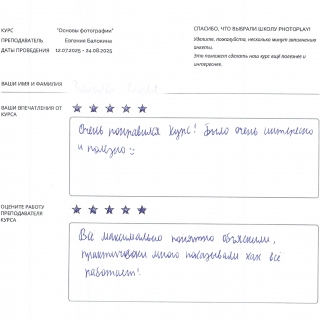 КУРС "Основы фотографии"
ПРЕПОДАВАТЕЛЬ Евгения Балокина
ДАТЫ ПРОВЕДЕНИЯ 12.07.2025 - 24.08.2025
СПАСИБО, ЧТО ВЫБРАЛИ ШКОЛУ PHOTOPLAY!
Уделите, пожалуйста, несколько минут заполнению
анкеты.
Это поможет сделать наш курс ещё полезнее и
интереснее.
ВАШИ ИМЯ И ФАМИЛИЯ
ВАШИ ВПЕЧАТЛЕНИЯ ОТ
КУРСА
Очень понравился курс! Было очень интересно
и полезно
ОЦЕНИТЕ РАБОТУ
ПРЕПОДАВАТЕЛЯ
КУРСА
Всё максимально понятно объясняли,
практически много показывали как всё
работает!